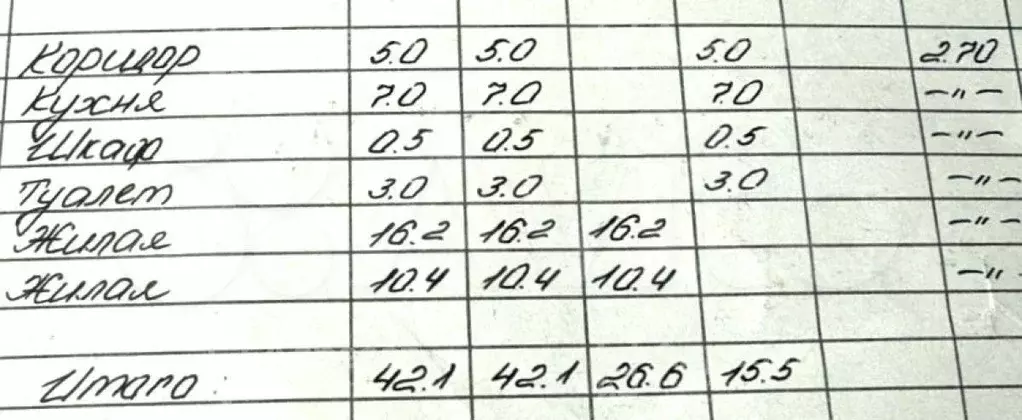 Коридор 5.0 5.0 5.0 2.70
Кухня 7.0 7.0 7.0 —"—
Шкаф 0.5 0.5 0.5 —"—
Туалет 3.0 3.0 3.0 —"—
Жилая 16.2 16.2 16.2 —"—
Жилая 10.4 10.4 10.4 —"
Итого: 42.1 42.1 26.6 15.5